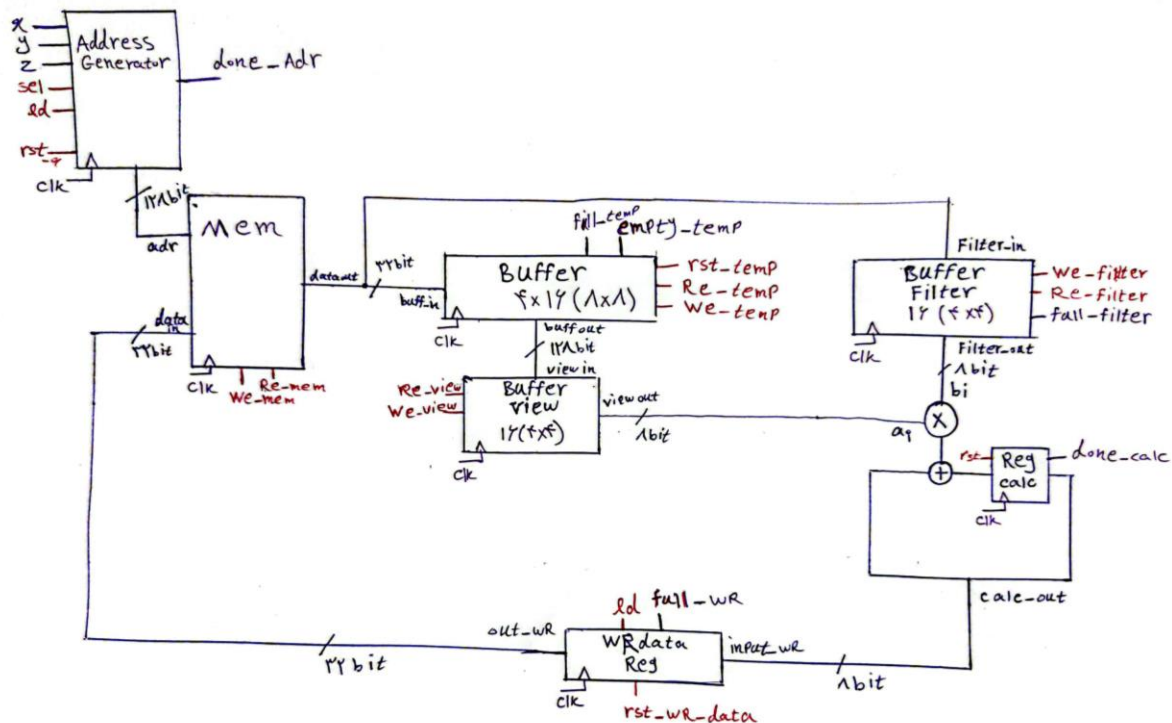 x
y
z
sel
ld
rst_q
clk
Address
Generator
done_Adr
۱۲۸bit
adr
Mem
data
in
۳۲bit
clk
We_mem
Re_mem
dataout
۳۲bit
buff_in
full_temp
empty_temp
Buffer
۴x۱۶ (۸x۸)
rst_temp
Re_temp
We_temp
clk
buffout
۱۲۸bit
view in
Re_view
We_view
Buffer
view
۱۶(۴x۴)
clk
viewout
۸bit
Filter_in
Buffer
Filter
۱۶ (۴x۴)
We-filter
Re-filter
full-filter
clk
Filter_out
۸bit
bi
x
+
rst
Reg
calc
done_calc
clk
calc_out
ld
full_WR
out_WR
WRdata
Reg
input_WR
۳۲bit
clk
rst_WR_data
۸bit